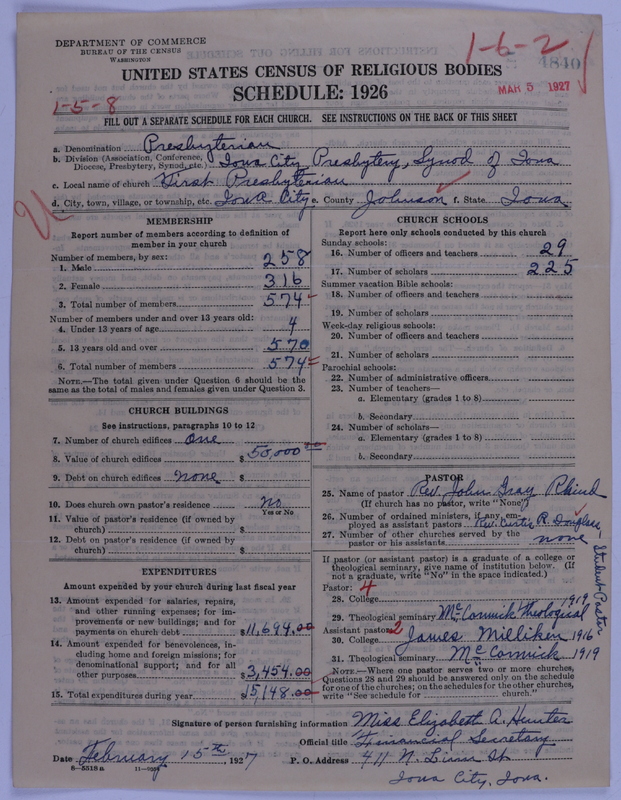 DEPARTMENT OF COMMERCE
BUREAU OF THE CENSUS
WASHINGTON
1-6-2
4840
MAR 5 1927
UNITED STATES CENSUS OF RELIGIOUS BODIES
SCHEDULE: 1926
1-5-8
FILL OUT A SEPARATE SCHEDULE FOR EACH CHURCH. SEE INSTRUCTIONS ON THE BACK OF THIS SHEET
a. Denomination Presbyterian
b. Division (Association, Conference, Diocese, Presbytery, Synod, etc.) Iowa City Presbytery, Synod of Iowa
c. Local name of church First Presbyterian
d. City, town, village, or township, etc. Iowa City e. County Johnson f. State Iowa
MEMBERSHIP
Report number of members according to definition of
member in your church
Number of members, by sex:
1. Male 258
2. Female 316
3. Total number of members 574
Number of members under and over 13 years old:
4. Under 13 years of age 4
5. 13 years old and over 570
6. Total number of members 574
NOTE.—The total given under Question 6 should be the
same as the total of males and females given under Question 3.
CHURCH BUILDINGS
See instructions, paragraphs 10 to 12
7. Number of church edifices one
8. Value of church edifices $ 50,000
9. Debt on church edifices none $
10. Does church own pastor's residence no
Yes or No
11. Value of pastor's residence (if owned by
church) $
12. Debt on pastor's residence (if owned by
church) $
EXPENDITURES
Amount expended by your church during last fiscal year
13. Amount expended for salaries, repairs,
and other running expenses; for im-
provements or new buildings; and for
payments on church debt $11,694.00
14. Amount expended for benevolences, in-
cluding home and foreign missions; for
denominational support; and for all
other purposes $3,454.00
15. Total expenditures during year $15,148.00
CHURCH SCHOOLS
Report here only schools conducted by this church
Sunday schools:
16. Number of officers and teachers 29
17. Number of scholars 225
Summer vacation Bible schools:
18. Number of officers and teachers
19. Number of scholars
Week-day religious schools:
20. Number of officers and teachers
21. Number of scholars
Parochial schools:
22. Number of administrative officers
23. Number of teachers—
a. Elementary (grades 1 to 8)
b. Secondary
24. Number of scholars—
a. Elementary (grades 1 to 8)
b. Secondary
PASTOR
25. Name of pastor Rev. John Gray Rhind
(If church has no pastor, write "None")
26. Number of ordained ministers, if any, em-
ployed as assistant pastors Rev. Curtis R. Douglass - Student Pastor
27. Number of other churches served by the
pastor or his assistants none
If pastor (or assistant pastor) is a graduate of a college or
theological seminary, give name of institution below. (If
not a graduate, write "No" in the space indicated.)
Pastor: 4
28. College 1919
29. Theological seminary McCormick Theological
Assistant pastor: 2
30. College James Milliken 1916
31. Theological seminary McCormick 1919
NOTE.—Where one pastor serves two or more churches,
Questions 28 and 29 should be answered only on the schedule
for one of the churches; on the schedules for the other churches,
write "See schedule for church."
Signature of person furnishing information Miss Elizabeth A. Hunter
Official title Financial Secretary
Date February 15th, 1927 P. O. Address 411 N. Linn St
8-5518a
Iowa City, Iowa.